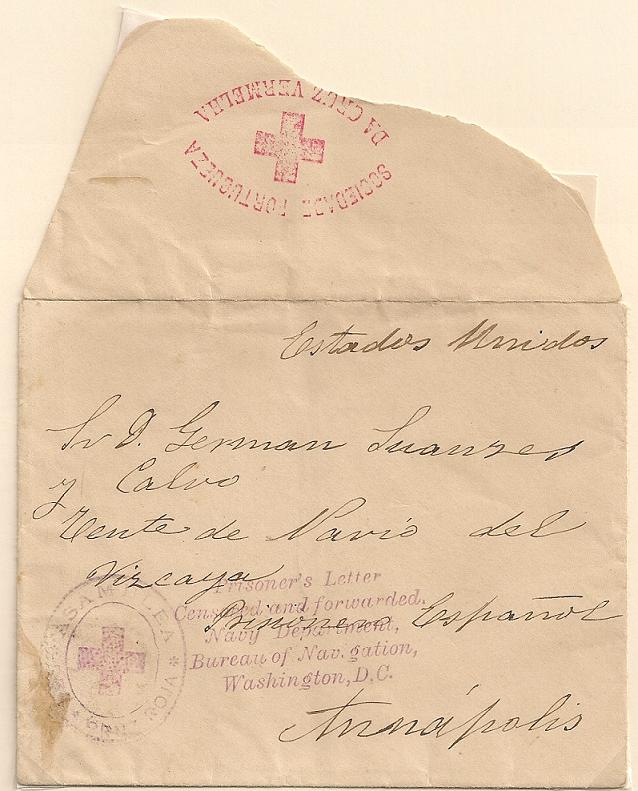 SOCIEDADE PORTUGUEZA
DA CRUZ VERMELHA
Estados Unidos
Sr D. German Suanzes
y Calvo
Tente de Navio del
Vizcaya
Prisonero Español
Annápolis
Prisoner's Letter
Censored and forwarded,
Navy Department,
Bureau of Navigation,
Washington, D.C.
ASAMBLEA
CRUZ ROJA